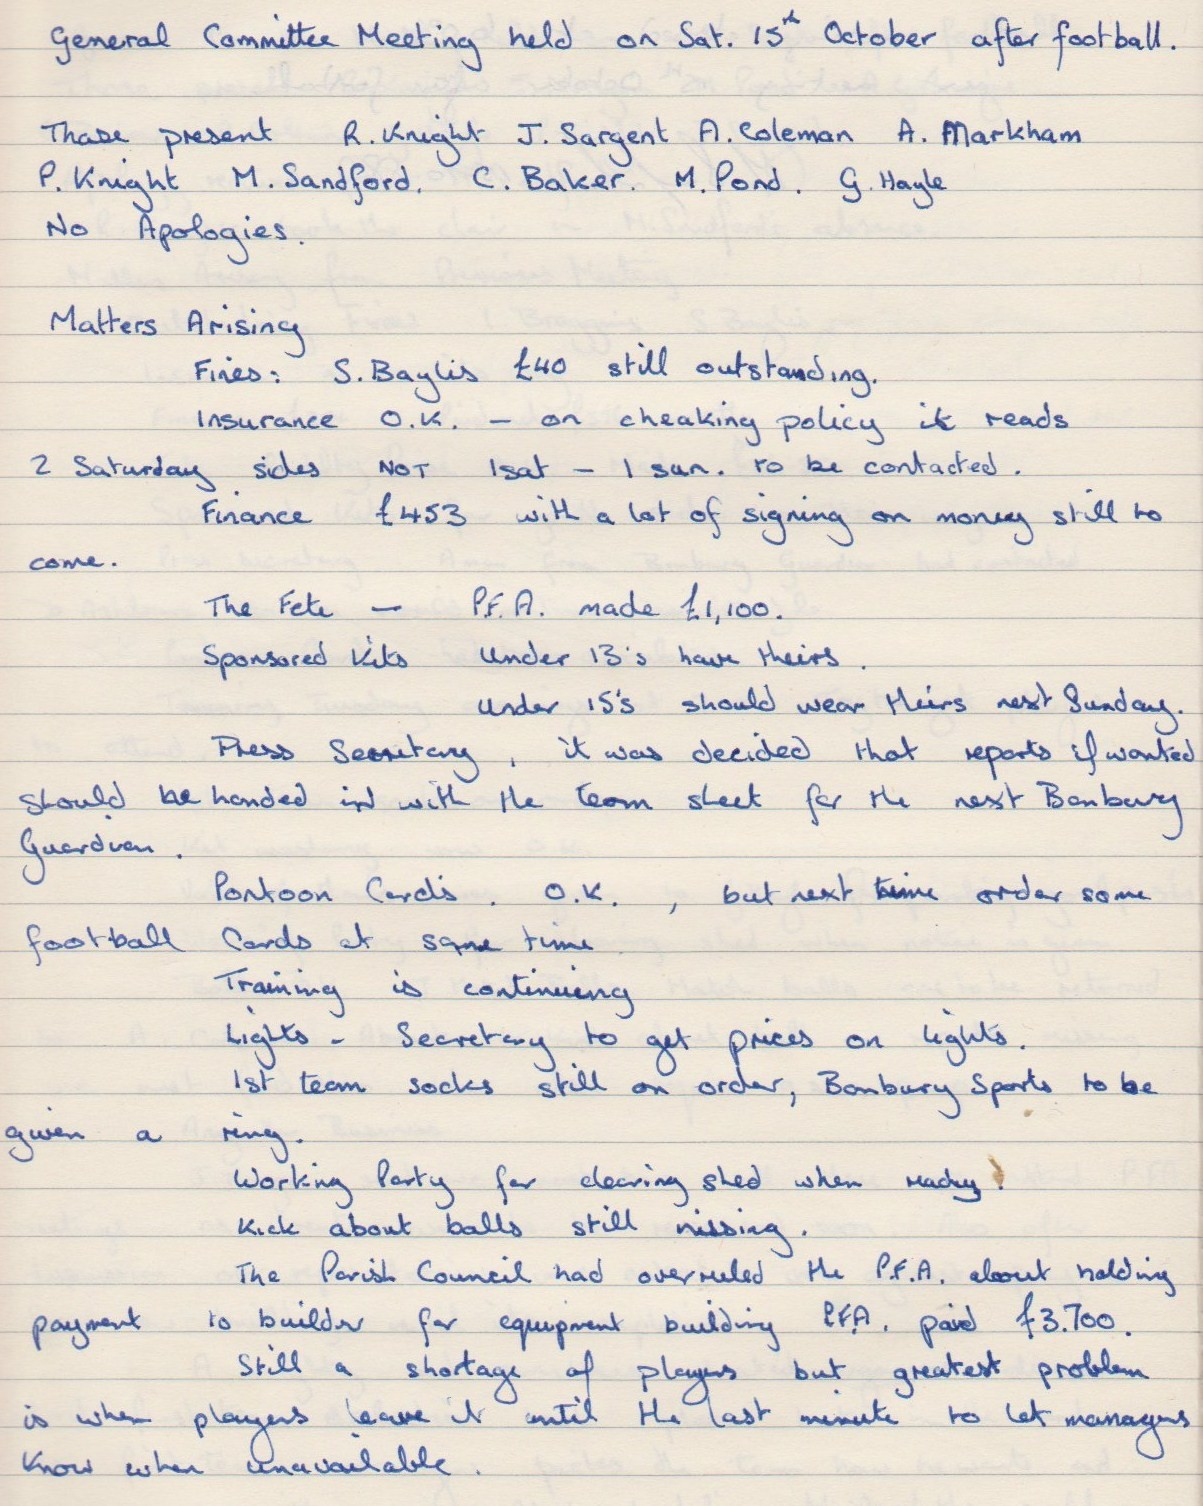 General Committee Meeting held on Sat. 15th October after football.
Those present R. Knight J. Sargent A. Coleman A. Markham
P. Knight M. Sandford. C. Baker. M. Pond. G. Hayle
No Apologies.
Matters Arising
Fines: S. Baylis £40 still outstanding.
Insurance O.K. - on cheaking policy it reads
2 Saturday sides NOT 1 sat - 1 sun. to be contacted.
Finance £453 with a lot of signing on money still to
come.
The Fete - P.F.A. made £1,100.
Sponsored Kits Under 13's have theirs.
Under 15's should wear theirs next Sunday.
Press Secretary, it was decided that reports if wanted
should be handed in with the team sheet for the next Banbury
Guardian.
Pontoon Cards. O.K., but next time order some
football Cards at same time
Training is continuing
Lights - Secretary to get prices on lights.
1st team socks still on order, Banbury Sports to be
given a ring.
Working Party for clearing shed when ready.
Kick about balls still missing.
The Parish Council had overruled the P.F.A. about holding
payment to builder for equipment building P.F.A. paid £3.700.
Still a shortage of players but greatest problem
is when players leave it until the last minute to let managers
know when unavailable.